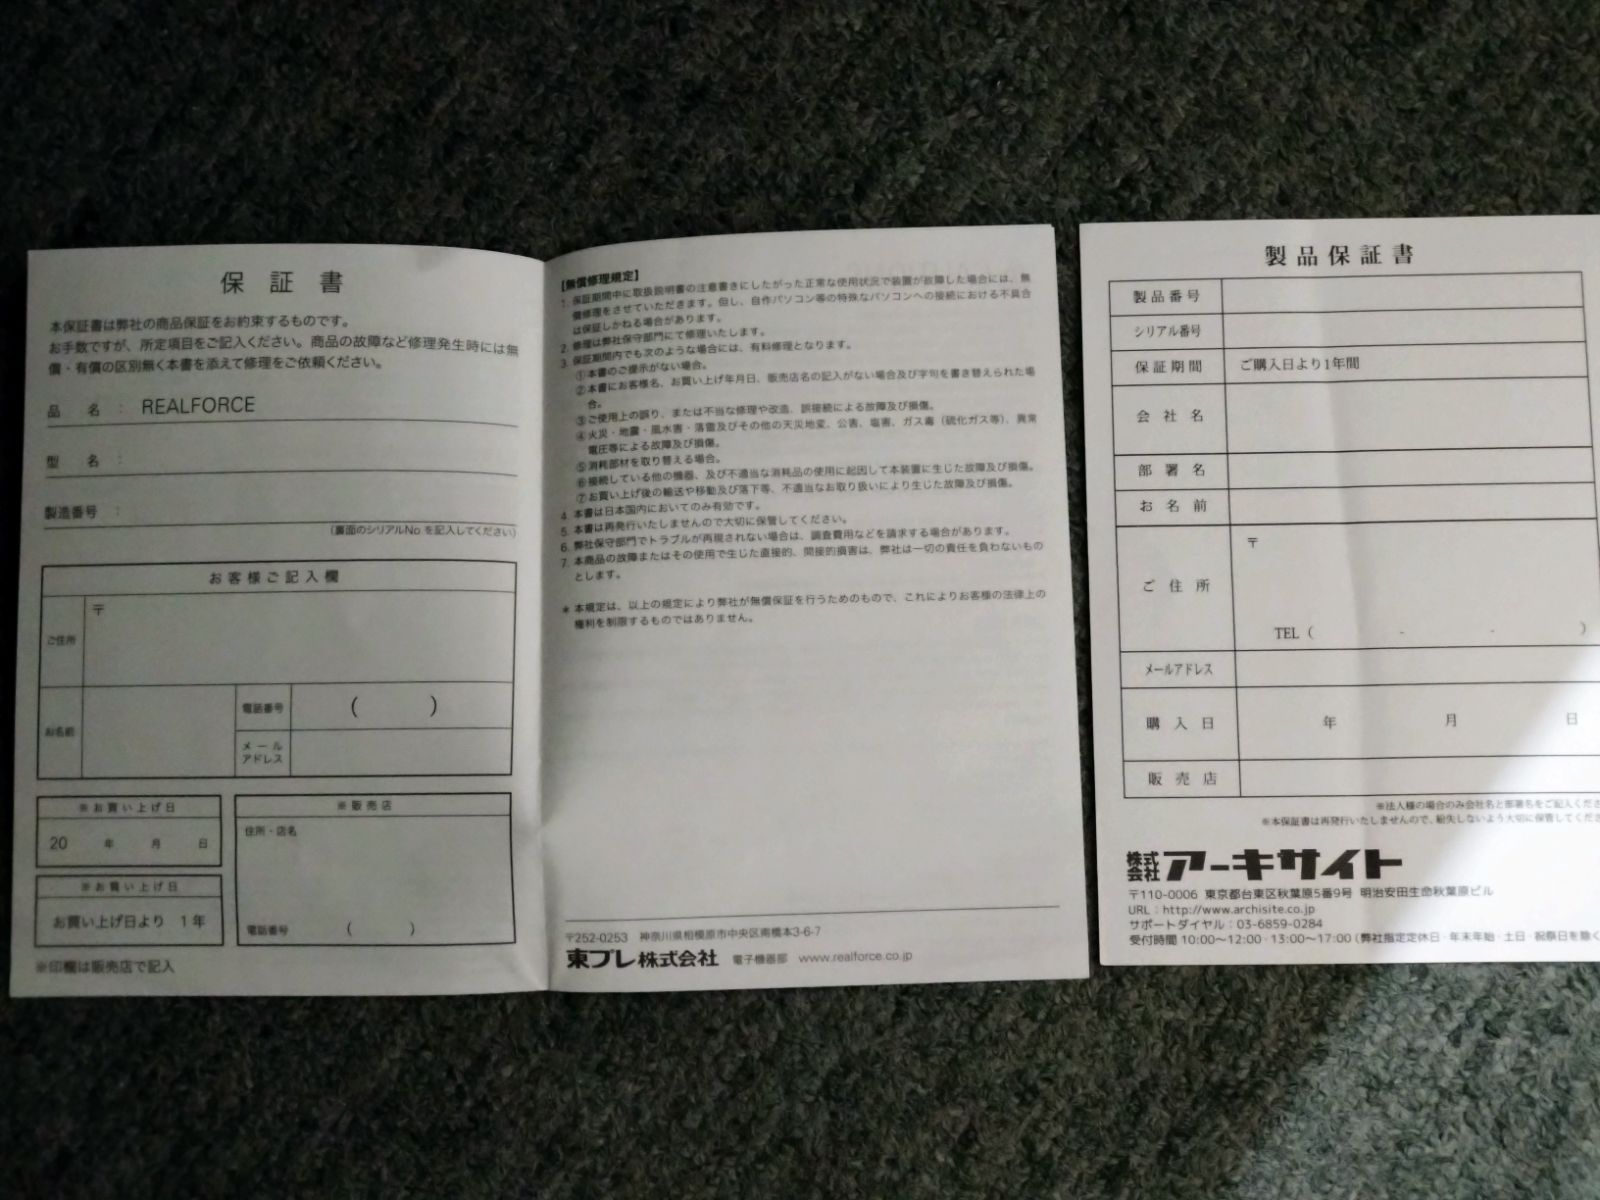 保証書
本保証書は弊社の商品保証をお約束するものです。
お手数ですが、所定項目をご記入ください。商品の故障など修理発生時には無
償・有償の区別無く本書を添えて修理をご依頼ください。
品名： REALFORCE
型名：
製造番号：
（裏面のシリアルNo を記入してください）
お客様ご記入欄
〒
ご住所
お名前
電話番号 （ ）
メール
アドレス
※お買い上げ日
20 年 月 日
※お買い上げ日
お買い上げ日より 1年
※販売店
住所・店名
電話番号 （ ）
※印欄は販売店で記入
【無償修理規定】
1. 保証期間中に取扱説明書の注意書きにしたがった正常な使用状況で装置が故障した場合には、無
償修理をさせていただきます。但し、自作パソコン等の特殊なパソコンへの接続における不具合
は保証しかねる場合があります。
2. 修理は弊社保守部門にて修理いたします。
3. 保証期間内でも次のような場合には、有料修理となります。
①本書のご提示がない場合。
②本書にお客様名、お買い上げ年月日、販売店名の記入がない場合及び字句を書き替えられた場
合。
③ご使用上の誤り、または不当な修理や改造、誤接続による故障及び損傷。
④火災・地震・風水害・落雷及びその他の天災地変、公害、塩害、ガス毒（硫化ガス等）、異常
電圧等による故障及び損傷。
⑤消耗部材を取り替える場合。
⑥接続している他の機器、及び不適当な消耗品の使用に起因して本装置に生じた故障及び損傷。
⑦お買い上げ後の輸送や移動及び落下等、不適当なお取り扱いにより生じた故障及び損傷。
4. 本書は日本国内においてのみ有効です。
5. 本書は再発行いたしませんので大切に保管してください。
6. 弊社保守部門でトラブルが再現されない場合は、調査費用などを請求する場合があります。
7. 本商品の故障またはその使用で生じた直接的、間接的損害は、弊社は一切の責任を負わないもの
とします。
＊ 本規定は、以上の規定により弊社が無償保証を行うためのもので、これによりお客様の法律上の
権利を制限するものではありません。
〒252-0253 神奈川県相模原市中央区南橋本3-6-7
東プレ株式会社 電子機器部 www.realforce.co.jp
製品保証書
製品番号
シリアル番号
保証期間 ご購入日より1年間
会社名
部署名
お名前
〒
ご住所
TEL（ - - ）
メールアドレス
購入日 年 月 日
販売店
※法人様の場合のみ会社名と部署名をご記入くださ
※本保証書は再発行いたしませんので、紛失しないよう大切に保管してくださ
株式会社アーキサイト
〒110-0006 東京都台東区秋葉原5番9号 明治安田生命秋葉原ビル
URL：http://www.archisite.co.jp
サポートダイヤル：03-6859-0284
受付時間 10:00～12:00・13:00～17:00（弊社指定定休日・年末年始・土日・祝祭日を除く